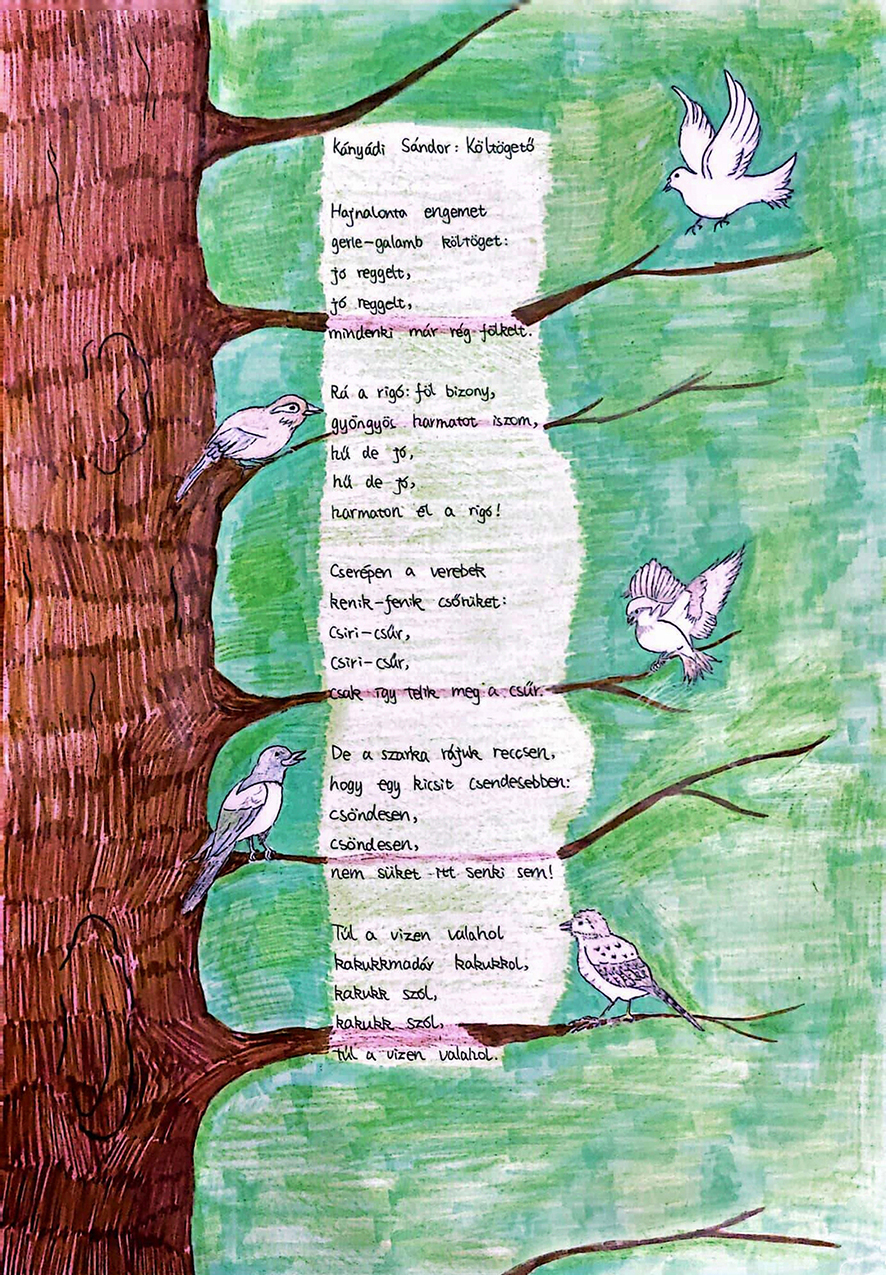 Kányádi Sándor: Költögető
Hajnalonta engemet
gerle-galamb költöget:
jó reggelt,
jó reggelt,
mindenki már rég fölkelt.
Rá a rigó: föl bizony,
gyöngyös harmatot iszom,
hű de jó,
hű de jó,
harmaton él a rigó!
Cserépen a verebek
kenik-fenik csőrüket:
Csiri-csűr,
Csiri-csűr,
csak így telik meg a csűr.
De a szarka rájuk reccsen,
hogy egy kicsit csendesebben:
csöndesen,
csöndesen,
nem süket itt senki sem!
Túl a vizen valahol
kakukkmadár kakukkol,
kakukk szól,
kakukk szól,
túl a vizen valahol.